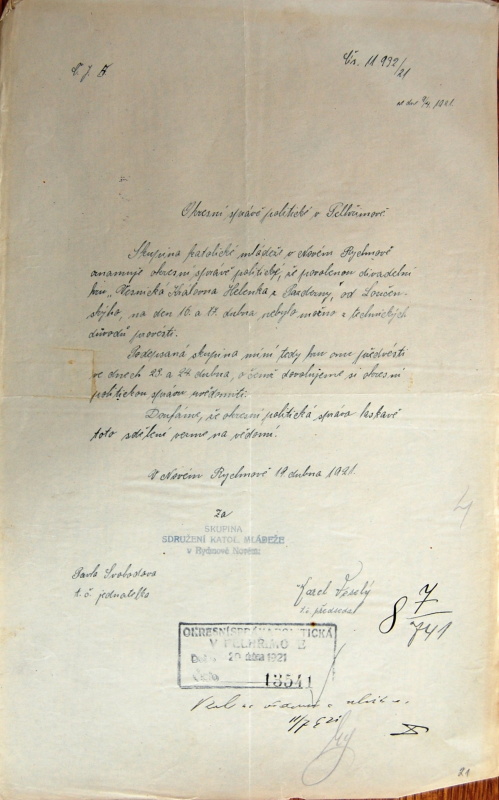 Č. J. 5
Čís. 11932/21
ze dne 9/4. 1921.
Okresní správě politické v Pelhřimově
Skupina katolické mládeže v Novém Rychnově
oznamuje okresní správě politické, že povolenou divadelní
hru „Vesnická Královna Helenka z Pazderny", od Loučen-
ského, na den 16. a 17. dubna nebylo možno z technických
důvodů provésti.
Podepsaná skupina míní tedy hru onu předvésti
ve dnech 23. a 24. dubna, o čemž dovolujeme si okresní
politickou správu uvědomiti.
Doufáme, že okresní politická správa laskavě
toto sdělení vezme na vědomí.
V Novém Rychnově 19 dubna 1921.
Za
SKUPINA
SDRUŽENÍ KATOL. MLÁDEŽE
v Rychnově Novém
Pavla Svobodova
t. č. jednatelka
Karel
t. č. předseda
8 7/741
OKRESNÍ SPRÁVA POLITICKÁ
V PELHŘIMOVĚ
Došlo 20. dubna 1921
Číslo 13541
4
21